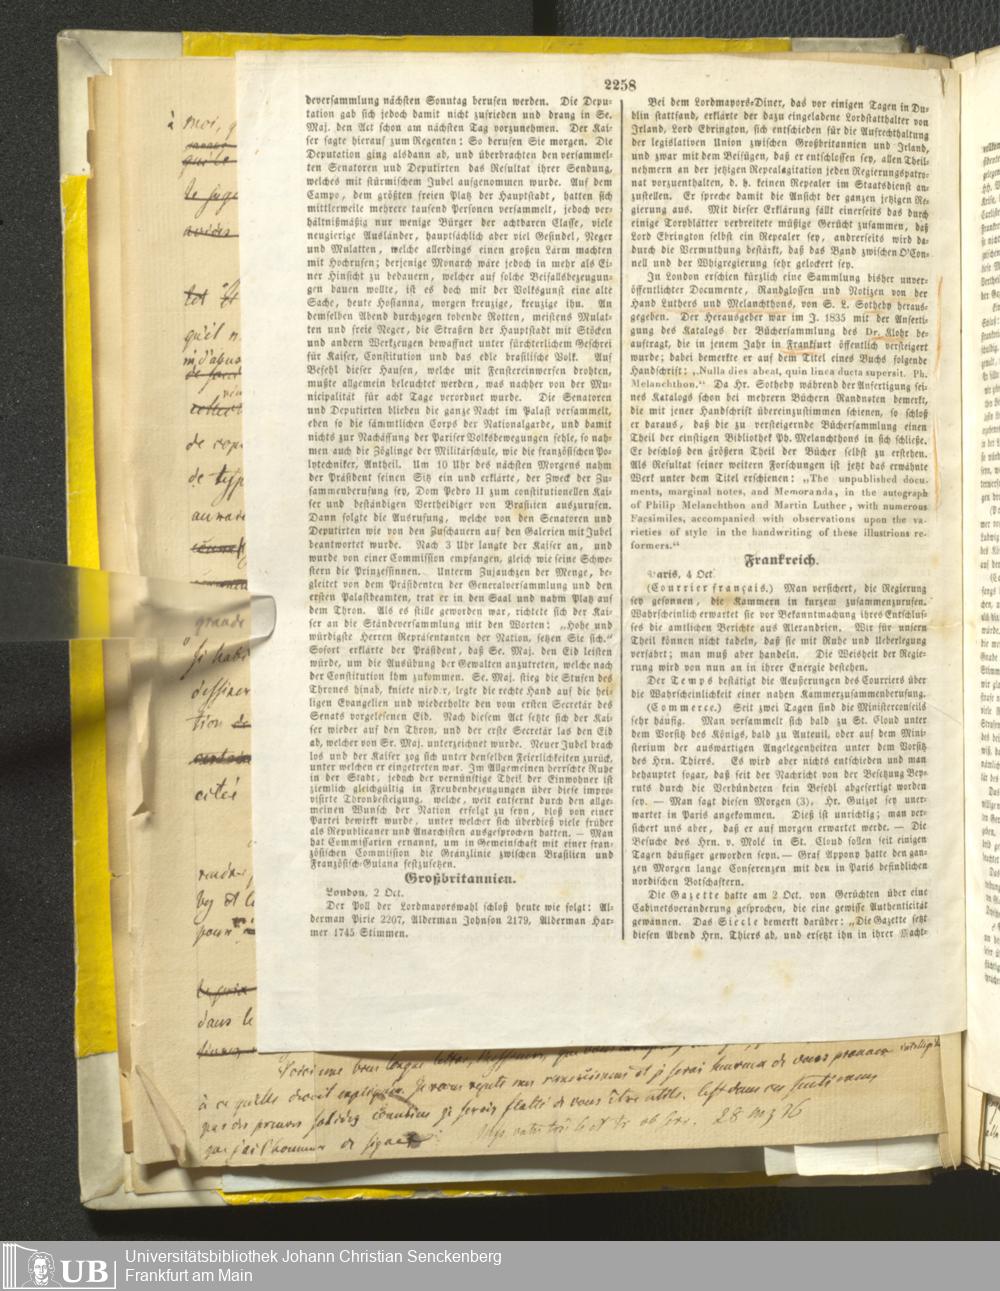 2258
deversammlung nächsten Sonntag berufen werden. Die Depu-
tation gab sich jedoch damit nicht zufrieden und drang in Se.
Maj. den Act schon am nächsten Tag vorzunehmen. Der Kai-
ser sagte hierauf zum Regenten: So berufen Sie morgen. Die
Deputation ging alsdann ab, und überbrachten den versammel-
ten Senatoren und Deputirten das Resultat ihrer Sendung,
welches mit stürmischem Jubel aufgenommen wurde. Auf dem
Campo, dem größten freien Platz der Hauptstadt, hatten sich
mittlerweile mehrere tausend Personen versammelt, jedoch ver-
hältnißmäßig nur wenige Bürger der achtbaren Classe, viele
neugierige Ausländer, hauptsächlich aber viel Gesindel, Neger
und Mulatten, welche allerdings einen großen Lärm machten
mit Hochrufen; derjenige Monarch wäre jedoch in mehr als Ei-
ner Hinsicht zu bedauern, welcher auf solche Beifallsbezeugun-
gen bauen wollte, ist es doch mit der Volksgunst eine alte
Sache, heute Hosianna, morgen kreuzige, kreuzige ihn. An
demselben Abend durchzogen tobende Rotten, meistens Mulat-
ten und freie Neger, die Straßen der Hauptstadt mit Stöcken
und andern Werkzeugen bewaffnet unter fürchterlichem Geschrei
für Kaiser, Constitution und das edle brasilische Volk. Auf
Befehl dieser Haufen, welche mit Fenstereinwerfen drohten,
mußte allgemein beleuchtet werden, was nachher von der Mu-
nicipalität für acht Tage verordnet wurde. Die Senatoren
und Deputirten blieben die ganze Nacht im Palast versammelt,
eben so die sämmtlichen Corps der Nationalgarde, und damit
nichts zur Nachäffung der Pariser Volksbewegungen fehle, so nah-
men auch die Zöglinge der Militärschule, wie die französischen Po-
lytechniker, Antheil. Um 10 Uhr des nächsten Morgens nahm
der Präsident seinen Sitz ein und erklärte, der Zweck der Zu-
sammenberufung sey, Dom Pedro II zum constitutionellen Kai-
ser und beständigen Vertheidiger von Brasilien auszurufen.
Dann folgte die Ausrufung, welche von den Senatoren und
Deputirten wie von den Zuschauern auf den Galerien mit Jubel
beantwortet wurde. Nach 3 Uhr langte der Kaiser an, und
wurde von einer Commission empfangen, gleich wie seine Schwe-
stern die Prinzessinnen. Unterm Zujauchzen der Menge, be-
gleitet von dem Präsidenten der Generalversammlung und den
ersten Palastbeamten, trat er in den Saal und nahm Platz auf
dem Thron. Als es stille geworden war, richtete sich der Kai-
ser an die Ständeversammlung mit den Worten: „Hohe und
würdigste Herren Repräsentanten der Nation, setzen Sie sich.“
Sofort erklärte der Präsident, daß Se. Maj. den Eid leisten
würde, um die Ausübung der Gewalten anzutreten, welche nach
der Constitution ihm zukommen. Se. Maj. stieg die Stufen des
Thrones hinab, kniete nieder, legte die rechte Hand auf die hei-
ligen Evangelien und wiederholte den vom ersten Secretär des
Senats vorgelesenen Eid. Nach diesem Act setzte sich der Kai-
ser wieder auf den Thron, und der erste Secretär las den Eid
ab, welcher von Sr. Maj. unterzeichnet wurde. Neuer Jubel brach
los und der Kaiser zog sich unter denselben Feierlichkeiten zurück,
unter welchen er eingetreten war. Im Allgemeinen herrschte Ruhe
in der Stadt, jedoch der vernünftige Theil der Einwohner ist
ziemlich gleichgültig in Freudenbezeugungen über diese impro-
visirte Thronbesteigung, welche, weit entfernt durch den allge-
meinen Wunsch der Nation erfolgt zu seyn, bloß von einer
Partei bewirkt wurde, unter welcher sich überdieß viele früher
als Republicaner und Anarchisten ausgesprochen hatten. — Man
hat Commissarien ernannt, um in Gemeinschaft mit einer fran-
zösischen Commission die Gränzlinie zwischen Brasilien und
Französisch-Guiana festzusetzen.
Großbritannien.
London, 2 Oct.
Der Poll der Lordmayorswahl schloß heute wie folgt: Al-
derman Pirie 2207, Alderman Johnson 2179, Alderman Har-
mer 1745 Stimmen.
Bei dem Lordmayors-Diner, das vor einigen Tagen in Du-
blin stattfand, erklärte der dazu eingeladene Lordstatthalter von
Irland, Lord Ebrington, sich entschieden für die Aufrechthaltung
der legislativen Union zwischen Großbritannien und Irland,
und zwar mit dem Beifügen, daß er entschlossen sey, allen Theil-
nehmern an der jetzigen Repealagitation jeden Regierungspatro-
nat vorzuenthalten, d. h. keinen Repealer im Staatsdienst an-
zustellen. Er spreche damit die Ansicht der ganzen jetzigen Re-
gierung aus. Mit dieser Erklärung fällt einerseits das durch
einige Toryblätter verbreitete müßige Gerücht zusammen, daß
Lord Ebrington selbst ein Repealer sey, andrerseits wird da-
durch die Vermuthung bestärkt, daß das Band zwischen O'Con-
nell und der Whigregierung sehr gelockert sey.
In London erschien kürzlich eine Sammlung bisher unver-
öffentlichter Documente, Randglossen und Notizen von der
Hand Luthers und Melanchthons, von S. L. Sotheby heraus-
gegeben. Der Herausgeber war im J. 1835 mit der Anferti-
gung des Katalogs der Büchersammlung des Dr. Kloß be-
auftragt, die in jenem Jahr in Frankfurt öffentlich versteigert
wurde; dabei bemerkte er auf dem Titel eines Buchs folgende
Handschrift: „Nulla dies abeat, quin linea ducta supersit. Ph.
Melanchthon.“ Da Hr. Sotheby während der Anfertigung sei-
nes Katalogs schon bei mehrern Büchern Randnoten bemerkt,
die mit jener Handschrift übereinzustimmen schienen, so schloß
er daraus, daß die zu versteigernde Büchersammlung einen
Theil der einstigen Bibliothek Ph. Melanchthons in sich schließe.
Er beschloß den größern Theil der Bücher selbst zu erstehen.
Als Resultat seiner weitern Forschungen ist jetzt das erwähnte
Werk unter dem Titel erschienen: „The unpublished docu-
ments, marginal notes, and Memoranda, in the autograph
of Philip Melanchthon and Martin Luther, with numerous
Facsimiles, accompanied with observations upon the va-
rieties of style in the handwriting of these illustrious re-
formers.“
Frankreich.
Paris, 4 Oct.
(Courrier français.) Man versichert, die Regierung
sey gesonnen, die Kammern in kurzem zusammenzurufen.
Wahrscheinlich erwartet sie vor Bekanntmachung ihres Entschlus-
ses die amtlichen Berichte aus Alexandrien. Wir für unsern
Theil können nicht tadeln, daß sie mit Ruhe und Ueberlegung
verfährt; man muß aber handeln. Die Weisheit der Regie-
rung wird von nun an in ihrer Energie bestehen.
Der Temps bestätigt die Aeußerungen des Courriers über
die Wahrscheinlichkeit einer nahen Kammerzusammenberufung.
(Commerce.) Seit zwei Tagen sind die Ministerconseils
sehr häufig. Man versammelt sich bald zu St. Cloud unter
dem Vorsitz des Königs, bald zu Auteuil, oder auf dem Mini-
sterium der auswärtigen Angelegenheiten unter dem Vorsitz
des Hrn. Thiers. Es wird aber nichts entschieden und man
behauptet sogar, daß seit der Nachricht von der Besetzung Bey-
ruts durch die Verbündeten kein Befehl abgefertigt worden
sey. — Man sagt diesen Morgen (3), Hr. Guizot sey uner-
wartet in Paris angekommen. Dieß ist unrichtig; man ver-
sichert uns aber, daß er auf morgen erwartet werde. — Die
Besuche des Hrn. v. Molé in St. Cloud sollen seit einigen
Tagen häufiger geworden seyn. — Graf Appony hatte den gan-
zen Morgen lange Conferenzen mit den in Paris befindlichen
nordischen Botschaftern.
Die Gazette hatte am 2 Oct. von Gerüchten über eine
Cabinetsveränderung gesprochen, die eine gewisse Authenticität
gewännen. Das Siecle bemerkt darüber: „Die Gazette setzt
diesen Abend Hrn. Thiers ab, und ersetzt ihn in ihrer Macht-
à moi,
qu'il n
de cop
grande
tion
cités
dans le
Voici une bien longue lettre, Monsieur,
à ce qu'elle devait expliquer. Je vous
que j'ai l'honneur de signer
28 mz 16
UB
Universitätsbibliothek Johann Christian Senckenberg
Frankfurt am Main